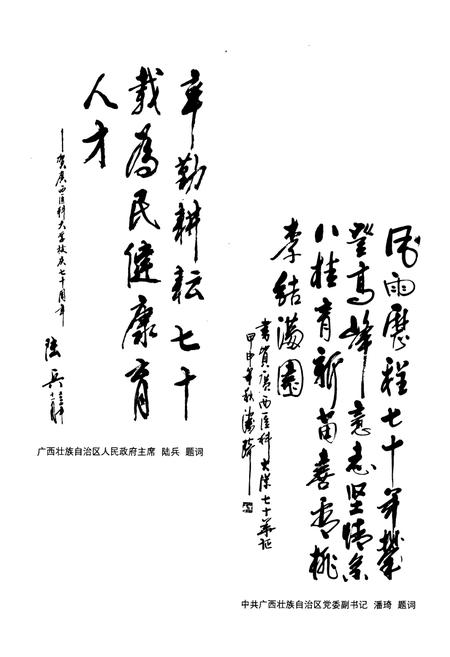 辛勤耕耘七十
載為民健康育
人才
——贺广西医科大学校庆七十周年
陆兵
广西壮族自治区人民政府主席 陆兵 题词
风雨歷程七十年攀
登高峰意志坚情系
八桂育新苗喜看桃
李结满園
書賀广西医科大学七十华诞
甲申年秋潘琦
中共广西壮族自治区党委副书记 潘琦 题词